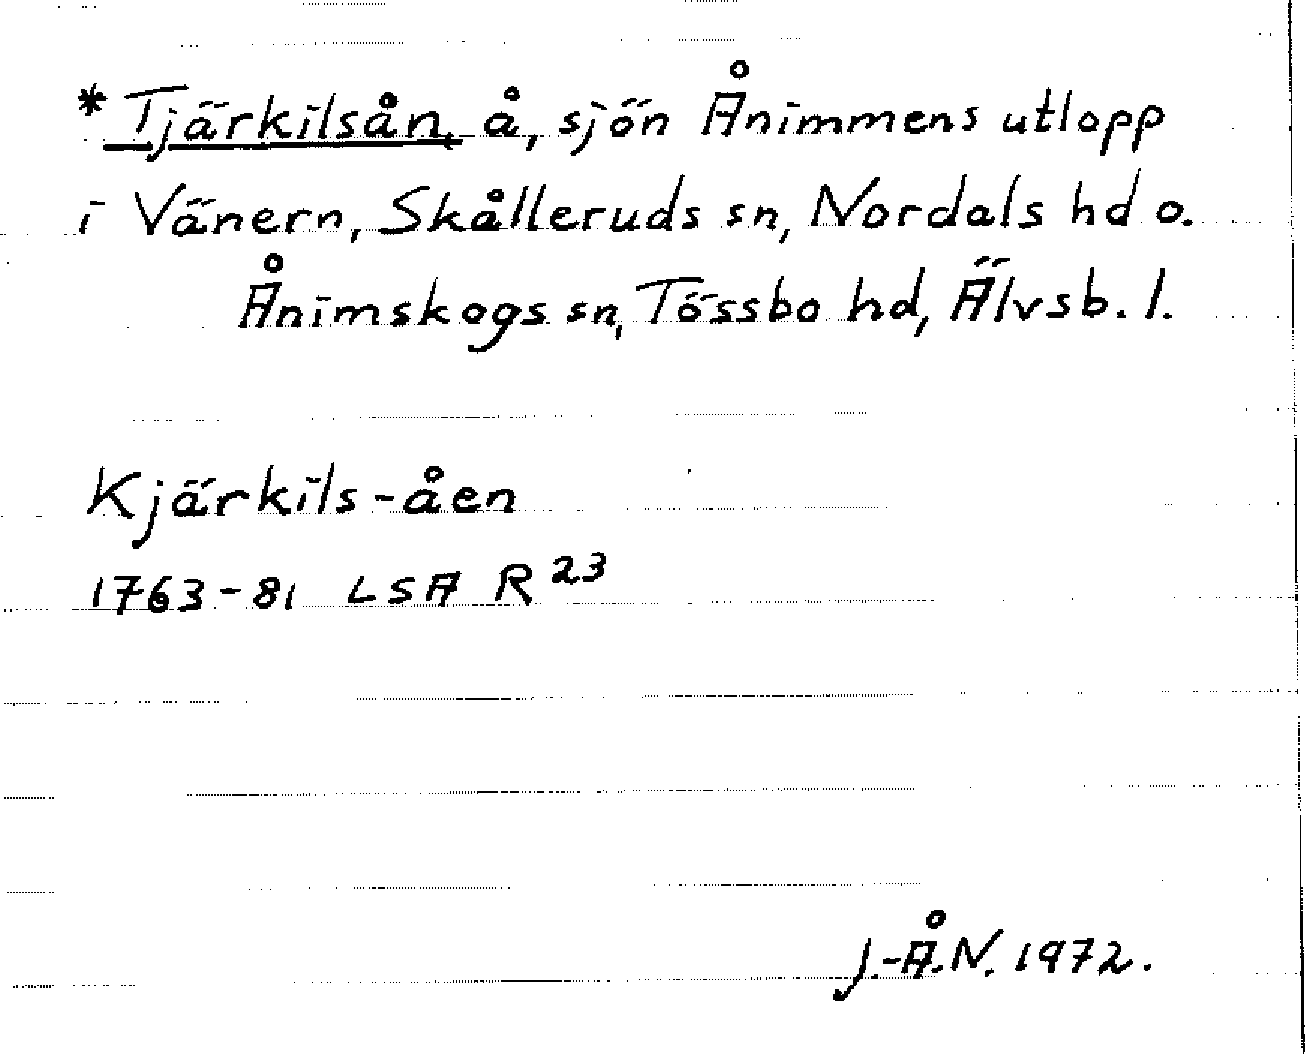 * Tjärkilsån, å, sjön Ånimmens utlopp
i Vänern, Skålleruds sn, Nordals hd o.
Ånimskogs sn, Tössbo hd, Älvsb. l.
Kjärkils-åen
1763-81 LSA R 23
J.-Å.N. 1972.